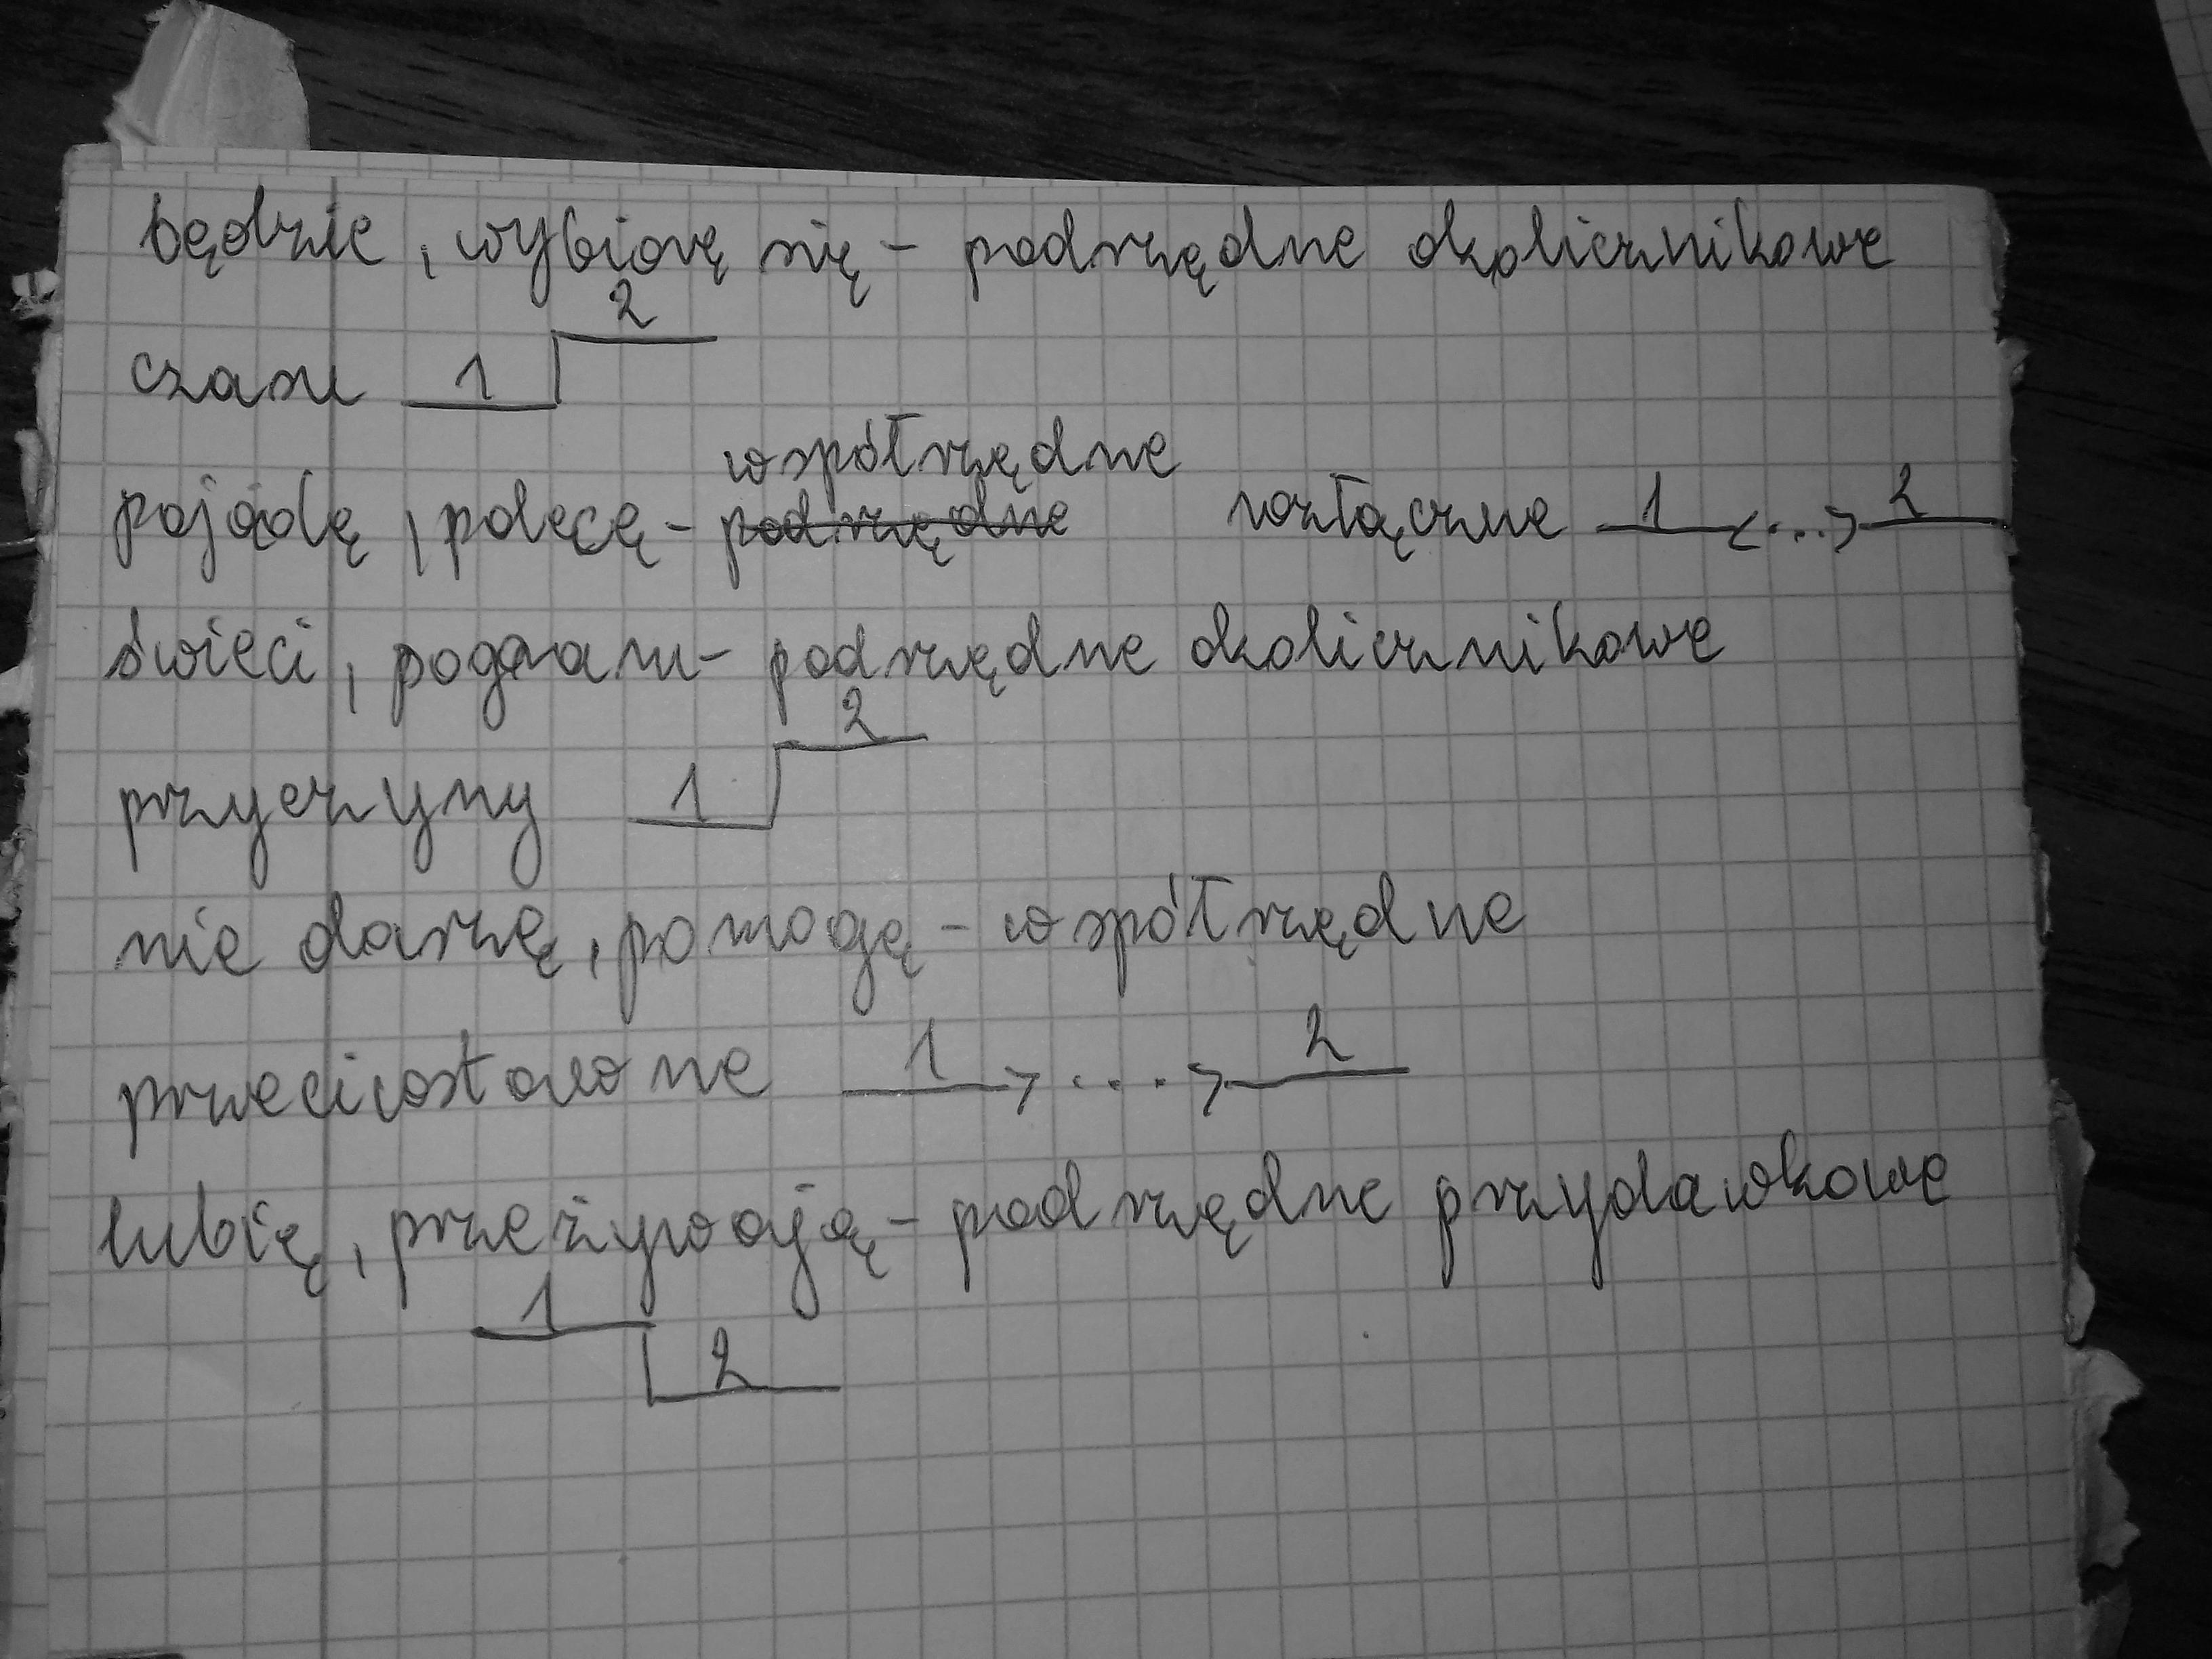 będzie, wybiorę się - podrzędne okolicznikowe
czasu 1 2
współrzędne
pojadę, polecę - podrzędne rozłączne 1 <...> 2
świeci, pogram - podrzędne okolicznikowe
przyczyny 1 2
nie dasz, pomogę - współrzędne
przeciwstawne 1 >...> 2
lubię, przeżywają - podrzędne przydawkowe
1
2